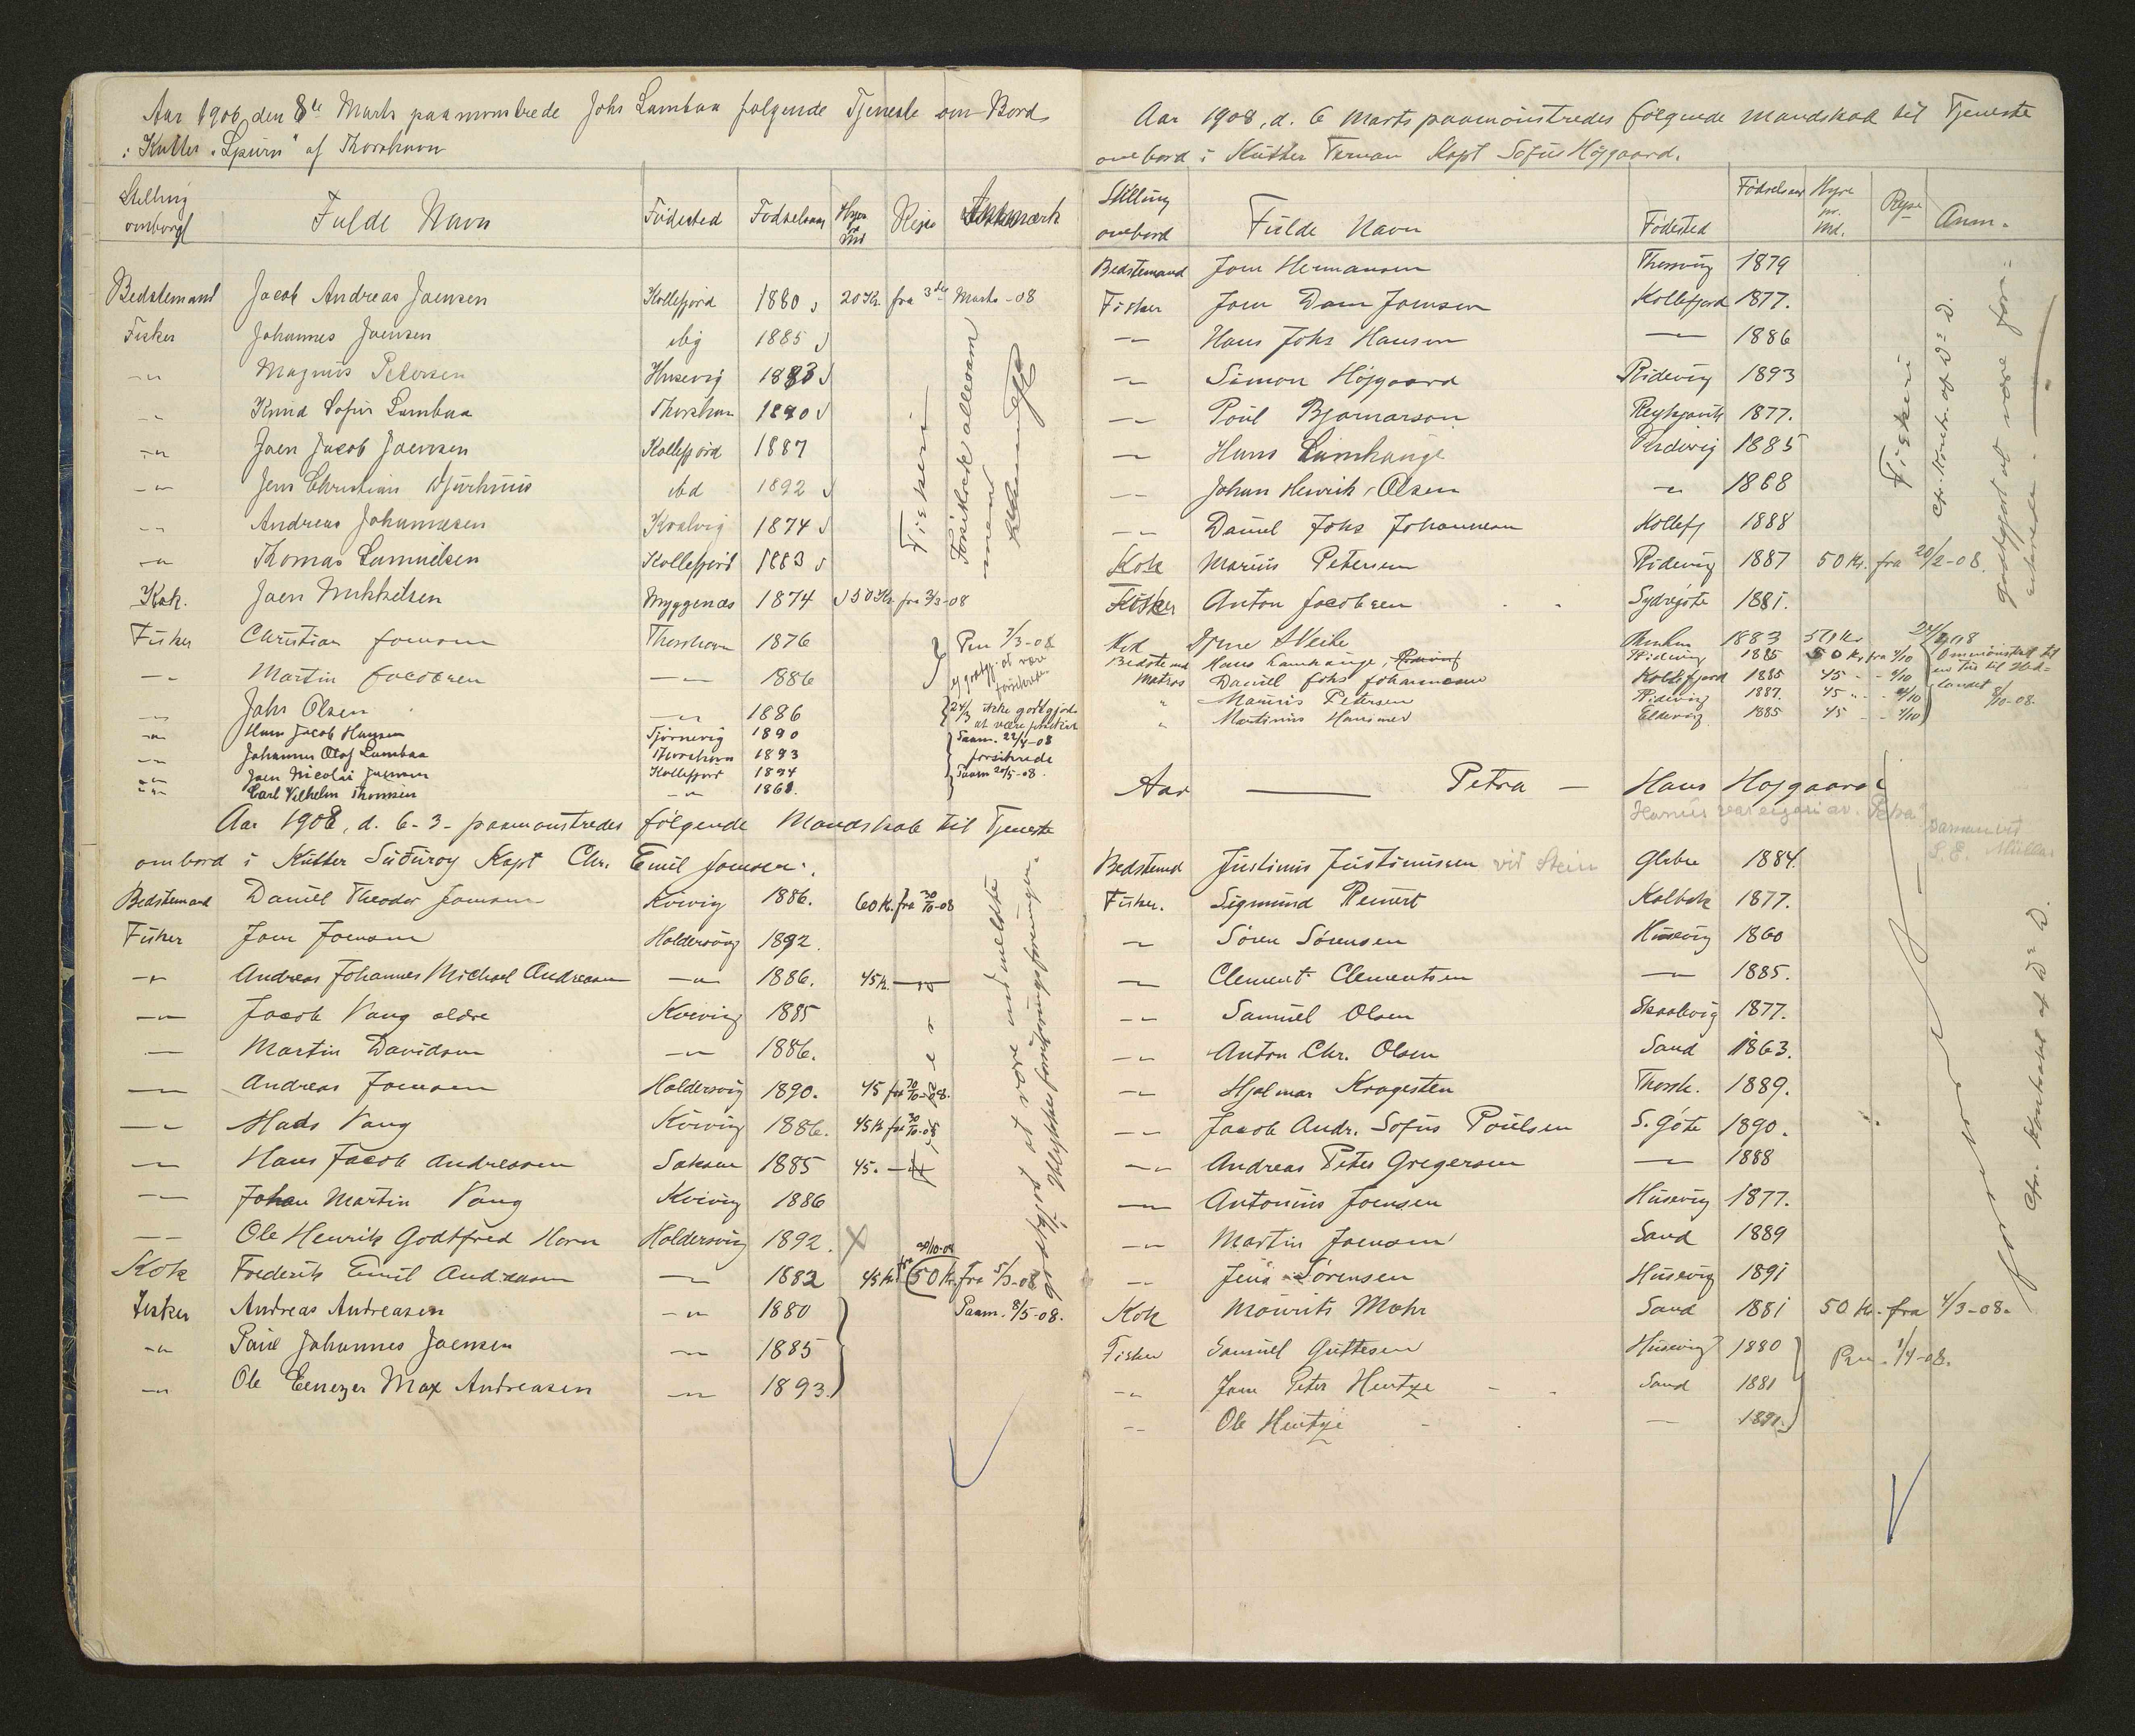 Aar 1908, den 8de Marts paamønstrede Johs Lambaa følgende Tjeneste om Bord
i Kutter "Spurn" af Thorshavn
Stilling ombord Fulde Navn Fødested Fødselsaar Hyre pr Md Rejse Anmærk
Bedstemand Jacob Andreas Joensen Kollefjord 1880 20 Kr. fra 3de Marts -08
Fisker Johannes Joensen ibig 1885
-"- Magnus Petersen Husevig 1883
-"- Knud Sofus Lambaa Thorshavn 1890
-"- Joen Jacob Joensen Kollefjord 1887
-"- Jens Christian Djurhuus ibd 1892
-"- Andreas Johannesen Kvalvig 1874
-"- Thomas Samuelsen Kollefjord 1883
Kok. Joen Mikkelsen Myggenæs 1874 50 Kr. fra 3/3-08
Fisker Christian Joensen Thorshavn 1876
-"- Martin Jacobsen -"- 1886
-"- Johs Olsen -"- 1886
-"- Hans Jacob Hansen Tjørnevig 1890
-"- Johannes Olaf Lambaa Thorshavn 1893
-"- Joen Nicolai Joensen Kollefjord 1894
-"- Carl Vilhelm Thomsen -"- 1861.
Fiskeri
Forsikrede allesammen
Pm 7/3-08
24/3 ikke godtgjort at være
Paam. 22/4-08
forsikrede
Paam 20/5-08.
Aar 1908, d. 6-3- paamønstredes følgende Mandskab til Tjeneste
ombord i Kutter Suduroy Kapt Chr. Emil Joensen.
Bedstemand Daniel Theodor Joensen Kvivig 1886. 60 Kr. fra 30/10-08
Fisker Joen Joensen Haldersvig 1892.
-"- Andreas Johannes Michael Andreasen -"- 1886. 45 Kr. -"-
-"- Jacob Vang ældre Kvivig 1885
-"- Martin Davidsen -"- 1886.
-"- Andreas Joensen Haldersvig 1890. 45 fra 30/10-08.
-"- Mads Vang Kvivig 1886. 45 Kr fra 30/10-08
-"- Hans Jacob Andreasen Saksen 1885 45. -"-
-"- Johan Martin Vang Kvivig 1886
-"- Ole Henrik Godtfred Horn Haldersvig 1892. X
Kok Frederik Emil Andreasen -"- 1882 45 Kr fra 30/10-08 (50 Kr. fra 5/3-08
Fisker Andreas Andreasen -"- 1880 Paam. 8/5-08.
-"- Poul Johannes Joensen -"- 1885
-"- Ole Eenezer Max Andreasen -"- 1893.
Fiskeri
godtgjort at være indmeldte
i Ulykkesforsikringsforeningen.
Aar 1908, d. 6 Marts paamønstredes følgende Mandskab til Tjeneste
ombord i Kutter Ternan Kapt Sofus Højgaard.
Stilling ombord Fulde Navn Fødested Fødselsaar Hyre pr. Md. Rejse Anm.
Bedstemand Joen Hermansen Thorsvig 1879
Fisker Joen Dam Joensen Kollefjord 1877.
-"- Hans Johs Hansen -"- 1886
-"- Simon Højgaard Ridevig 1893
-"- Poul Bjarnarson Reykjavik 1877.
-"- Hans Lamhauge Ridevig 1885
-"- Johan Henrik Olsen -"- 1868
-"- Daniel Johs Johannesen Kollefj 1888
Kok Marius Petersen Ridevig 1887 50 Kr. fra 20/2-08.
Fisker Anton Jacobsen Sydregøte 1881.
Kok 1883
Bedstemand Hans Lamhauge, Ridevig 1885 50 Kr fra 9/10
Matros Daniel Johs Johannesen Kollefjord 1885 45 - - 9/10
" Marius Petersen Ridevig 1887. 45 " - 9/10
" Martinus Hansen 1885 45 - - 9/10
Ommønstret til en Tur til Islandet 8/10-08.
Fiskeri
Cfr. Kontr. af D= D.
godtgjort at være for-
sikrede.
Aar — Petra — Hans Højgaard
Hanus var eigari av "Petra" saman við
S. E. Müller
Bedstemd Justinus Justinussen við Stein Glibre 1884.
Fisker. Sigmund Reinert Kalbak 1877.
-"- Søren Sørensen Husevig 1860
-"- Clement Clementsen -"- 1885.
-"- Samuel Olsen Skaalevig 1877.
-"- Anton Chr. Olsen Sand 1863.
-"- Hjalmar Kragesten Thorsh. 1889.
-"- Jacob Andr. Sofus Poulsen S. Gøte 1890.
-"- Andreas Peter Gregersen -"- 1888
-"- Antonius Joensen Husevig 1877.
-"- Martin Joensen Sand 1889
-"- Jens Sørensen Husevig 1891
Kok Mourits Mohr Sand 1881 50 Kr. fra 4/3-08.
Fisker Samuel Guttesen Husevig 1880 Pm. 1/4-08.
-"- Joen Peter Hentze Sand 1881
-"- Ole Hentze -"- 1891.
Cfr. Kontrakt af D= D.